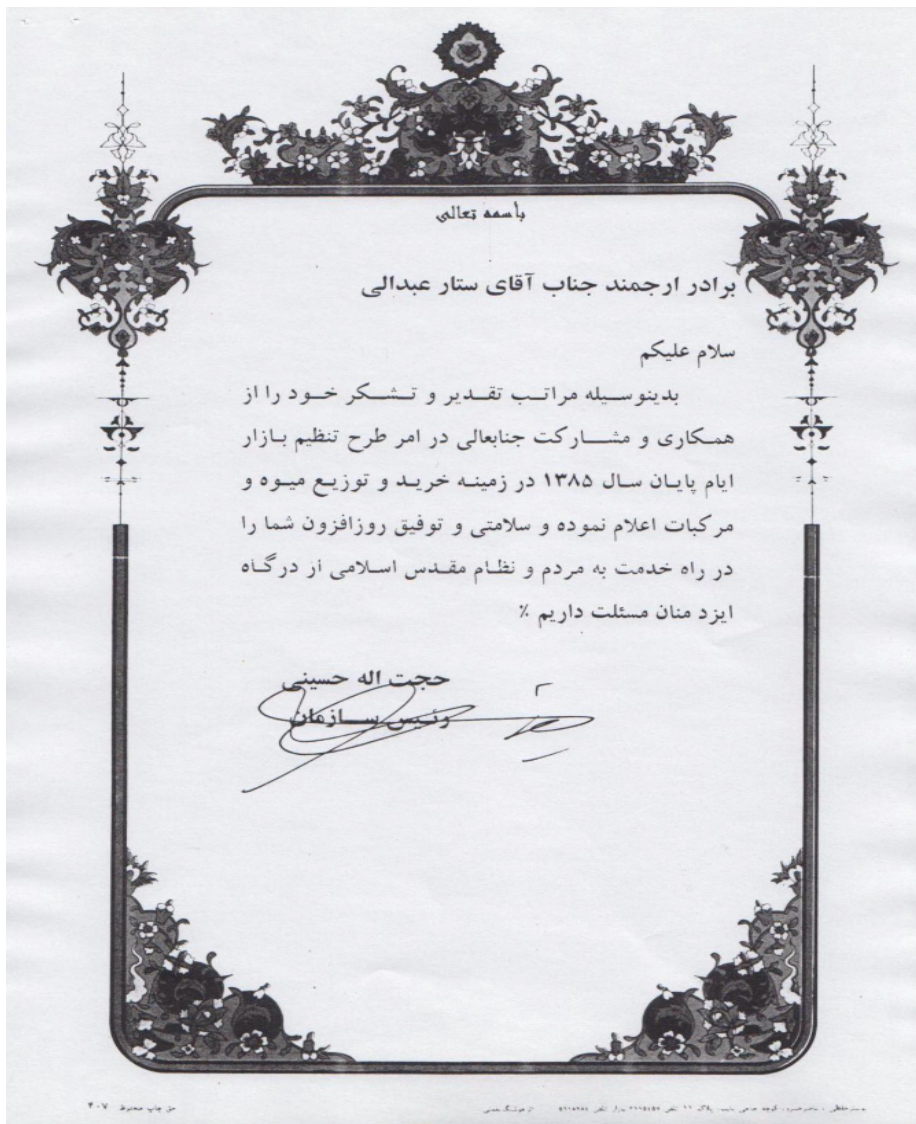 بأسمه تعالی
برادر ارجمند جناب آقای ستار عبدالی
سلام علیکم
بدینوسیله مراتب تقدیر و تشکر خود را از
همکاری و مشارکت جنابعالی در امر طرح تنظیم بازار
ایام پایان سال ۱۳۸۵ در زمینه خرید و توزیع میوه و
مرکبات اعلام نموده و سلامتی و توفیق روزافزون شما را
در راه خدمت به مردم و نظام مقدس اسلامی از درگاه
ایزد منان مسئلت داریم ٪
حجت اله حسینی
رئیس سازمان
حق چاپ محفوظ ۴۰۷